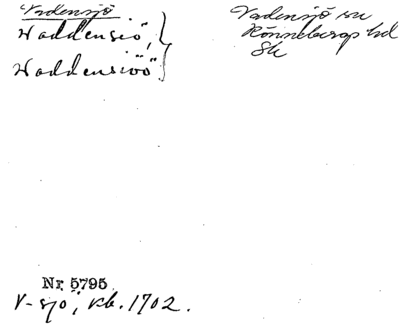 Vadensjö
Waddensiö,
Waddensiöö
Vadensjö sn
Rönnebergs hd
Sk
Nr 5795
V-sjö, kb. 1702.